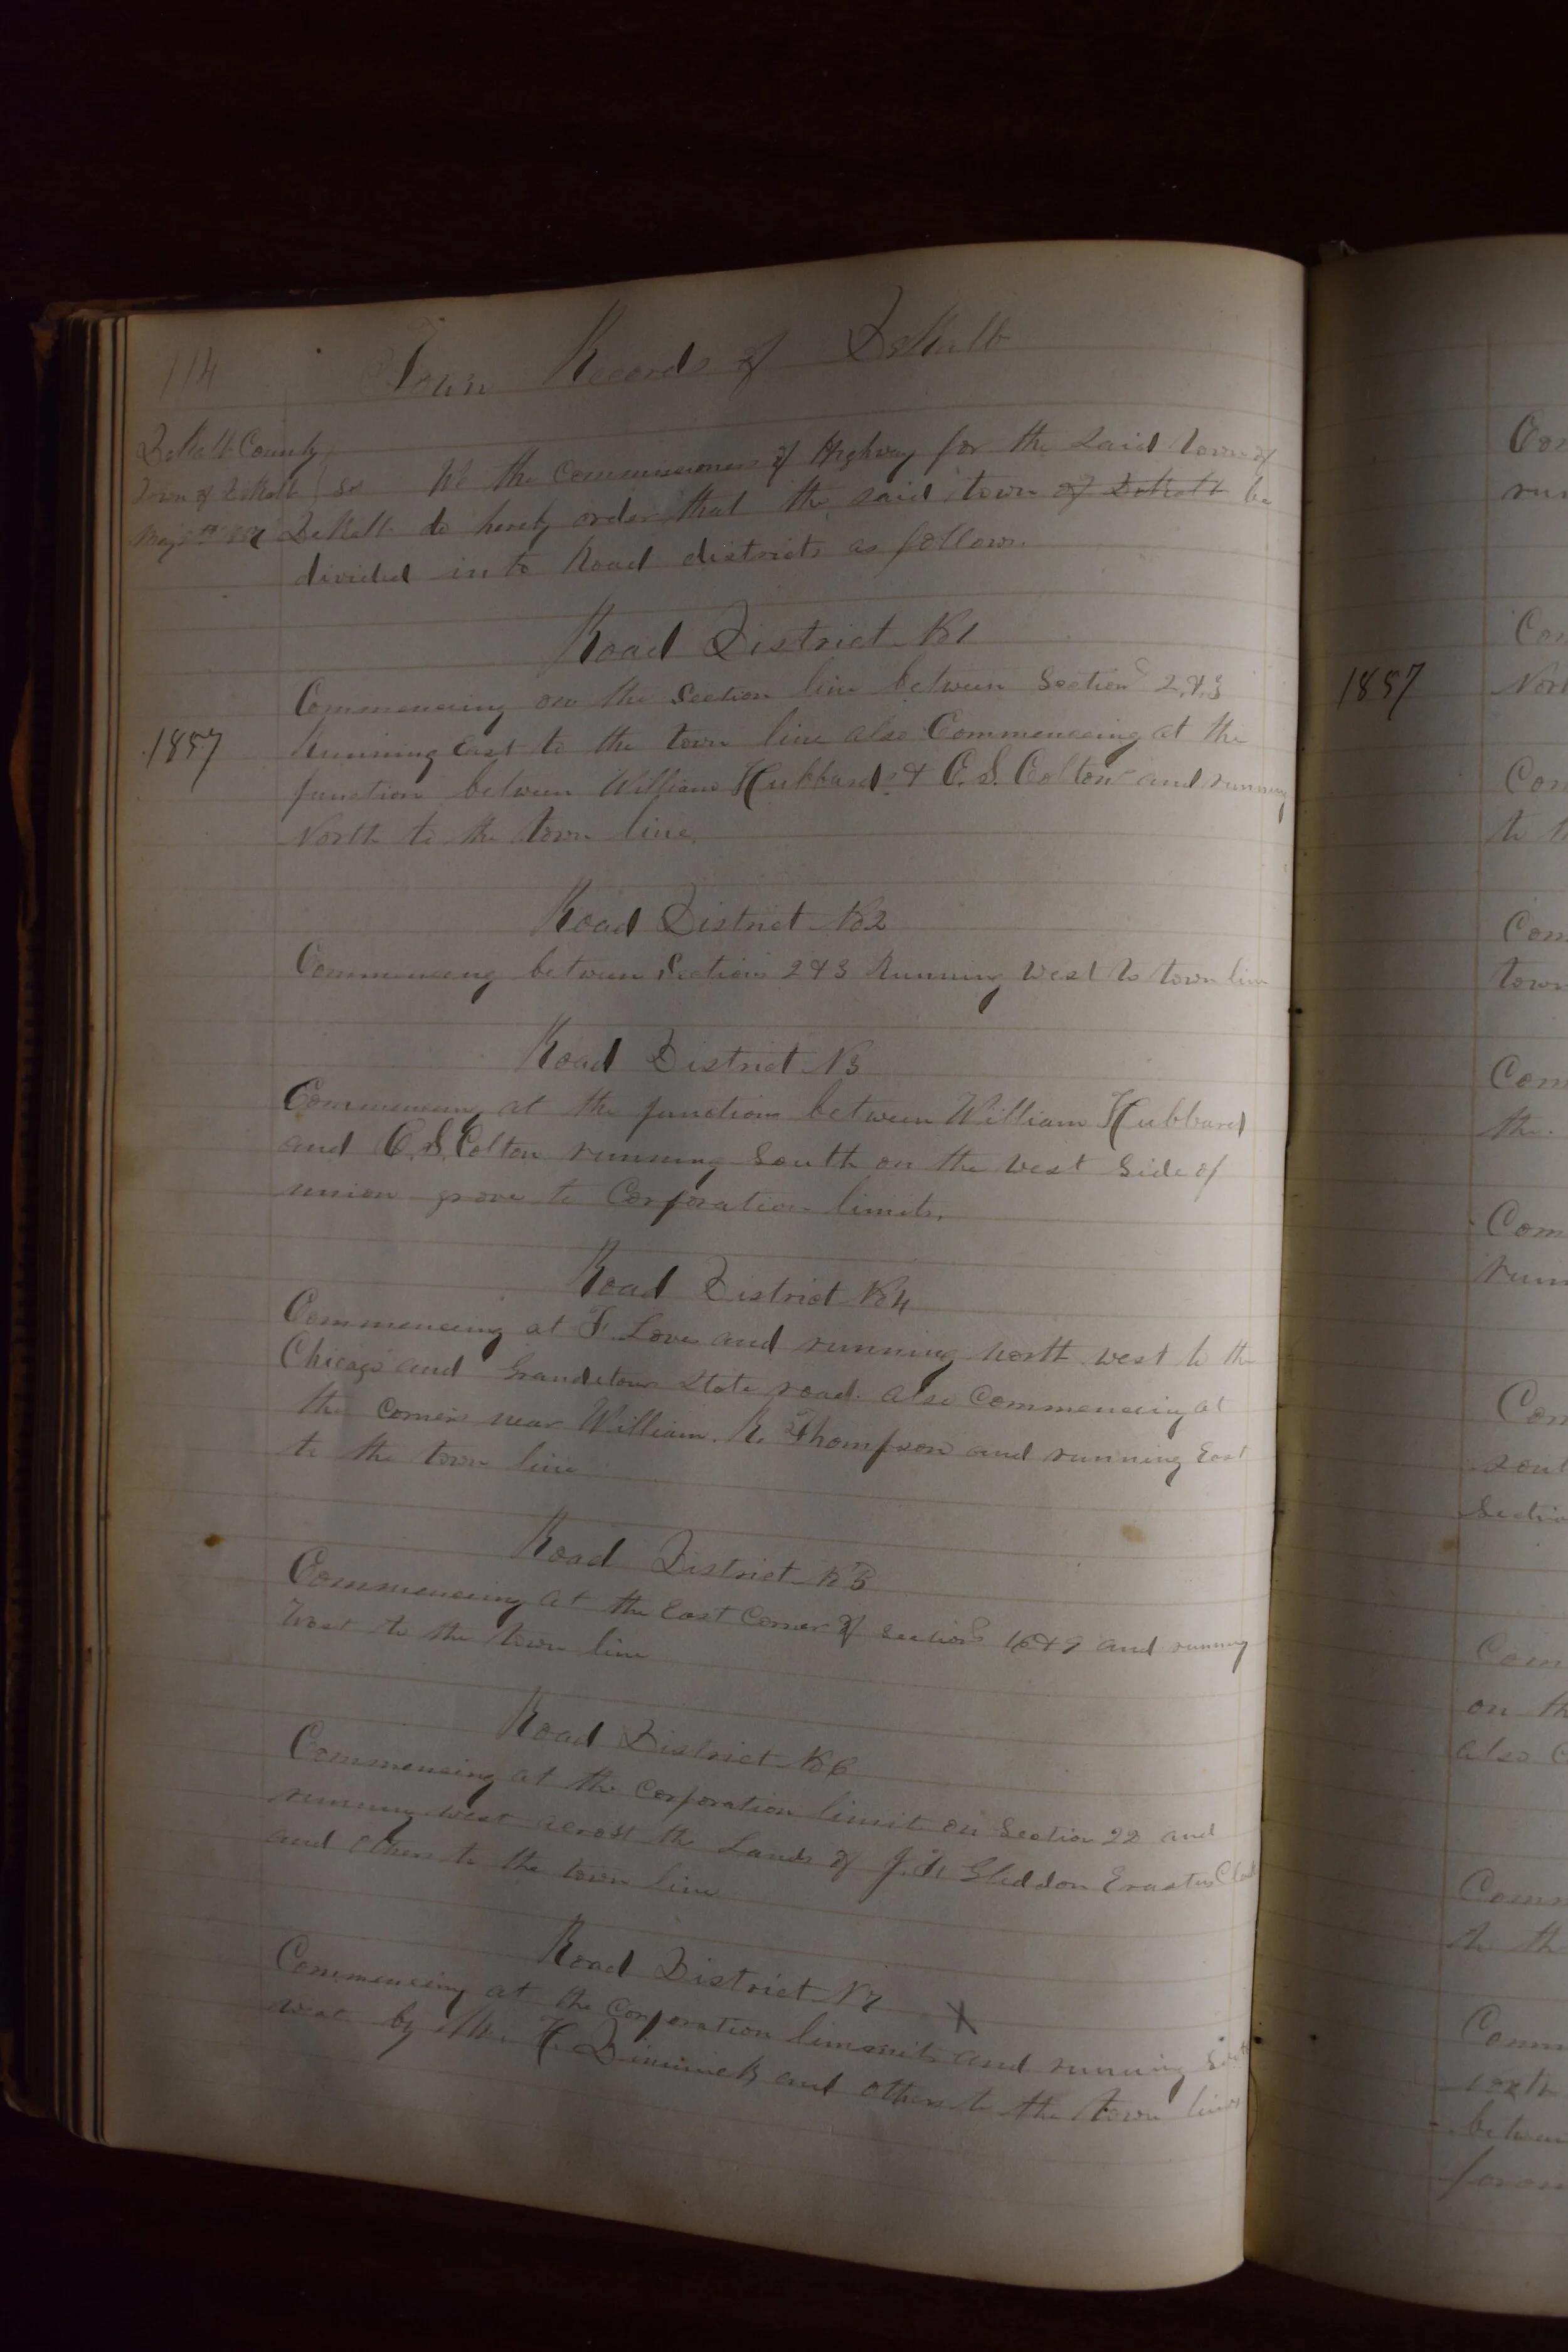 114 Town Records of DeKalb
DeKalb County
Town of DeKalb } SS We the Commissioners of Highway for the said town of
May 1857 DeKalb do hereby order that the said town of DeKalb be
divided into Road districts as follows.
Road District No 1
Commencing on the Section line between Sections 2, & 3
1857 Running East to the town line also Commencing at the
junction between William Hubbards & C. S. Colton and running
North to the town line.
Road District No 2
Commencing between Sections 2 & 3 Running West to town line
Road District N 3
Commencing at the junction between William Hubbard
and C. S. Colton running South on the West Side of
union grove to Corporation limits.
Road District No 4
Commencing at F. Loves and running north west to the
Chicago and Grandetour State road. also Commencing at
the Corners near William. R. Thompson and running East
to the town line
Road District No 5
Commencing at the East Corner of Sections 16 & 9 and running
West to the town line
Road District No 6
Commencing at the Corporation limit on Section 22 and
running West across the Lands of Gleddon Erastus
and others to the town line
Road District N 7 X
Commencing at the Corporation limmits and running South
West by Mr. H. Dimmick and others to the town line
1857
run
Nort
to th
town
the
runn
sout
Section
on th
also C
to th
north
between